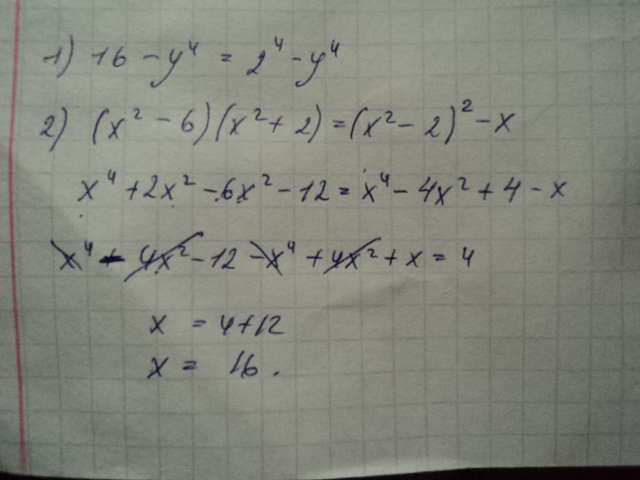 1) 16 - y⁴ = 2⁴ - y⁴
2) (x² - 6)(x² + 2) = (x² - 2)² - x
x⁴ + 2x² - 6x² - 12 = x⁴ - 4x² + 4 - x
x⁴ - 4x² - 12 - x⁴ + 4x² + x = 4
x = 4 + 12
x = 16.